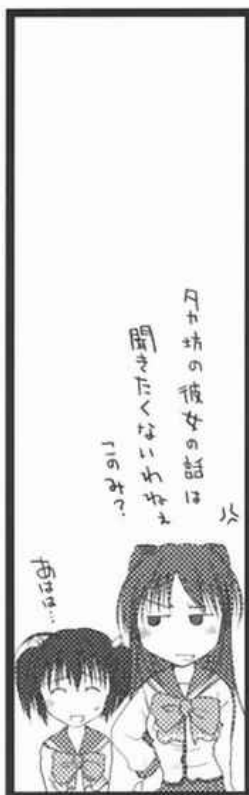 タカ坊の彼女の話は
聞きたくないわねぇ
このみ?
あはは…